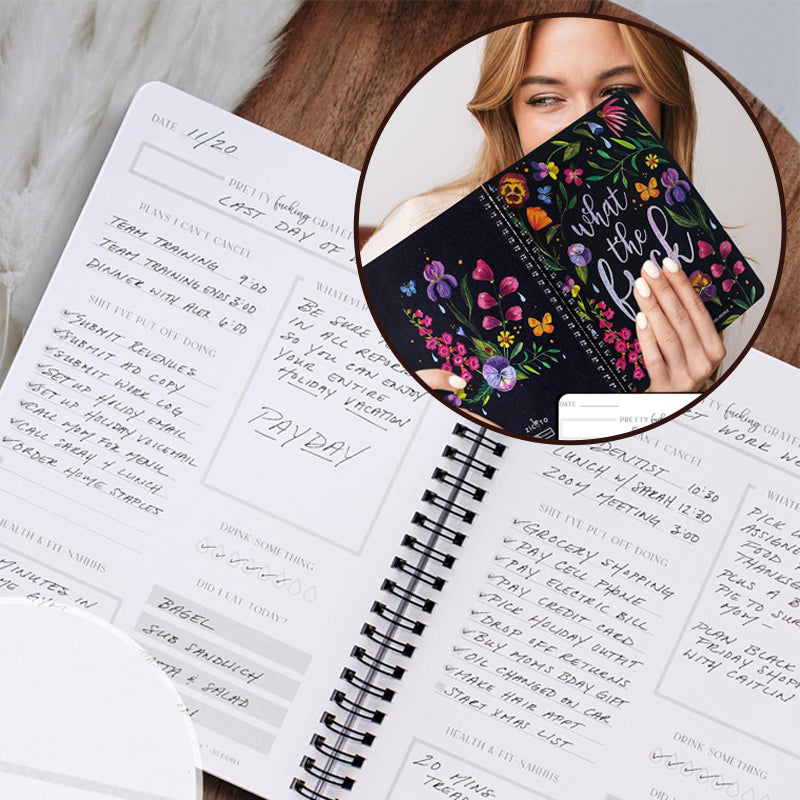 DATE 11/20
PRETTY fucking GRATEF
LAST DAY OF
PLANS I CAN'T CANCEL
TEAM TRAINING 9:00
TEAM TRAINING ENDS 3:00
DINNER WITH ALEX 6:00
SHIT I'VE PUT OFF DOING
✓SUBMIT REVENUES
✓SUBMIT MD COPY
✓SUBMIT WORK LOG
✓SETUP HOLIDY EMAIL
✓SET UP HOLIDAY VOICEMAIL
✓CALL MOM FOR MENU
✓CALL SARAH 4 LUNCH
✓ORDER HOME STAPLES
HEALTH & FIT-NAHHHS
MINUTES IN
WHATEVE
BE SURE
IN ALL REPOR
SO YOU CAN ENJOY
YOUR ENTIRE
HOLIDAY VACATION
PAYDAY
DRINK SOMETHING
DID I EAT TODAY?
BAGEL
SUB SANDWICH
PASTA & SALAD
-BUDDHA
what
the
f*ck
ZICOTO
DATE
PRETTY fucking
PRETTY fucking GRATEF
WORK
CAN'T CANCEL
DENTIST 10:30
LUNCH W/ SARAH 12:30
ZOOM MEETING 3:00
SHIT I'VE PUT OFF DOING
✓GROCERY SHOPPING
✓PAY CELL PHONE
✓PAY ELECTRIC BILL
✓PAY CREDIT CARD
✓PICK HOLIDAY OUTFIT
✓DROP OFF RETURNS
✓BUY MOMS BDAY GIFT
✓OIL CHANGED ON CAR
✓MAKE HAIR APPT
START XMAS LIST
HEALTH & FIT-NAHHHS
20 MINS
TREA
WHATE
PICK
ASSIGNE
FOOD
THANKSG
PLUS A B
PIE TO SUR
MOM-
PLAN BLACK
FRIDAY SHOPP
WITH CAITLIN
DRINK SOMETHING